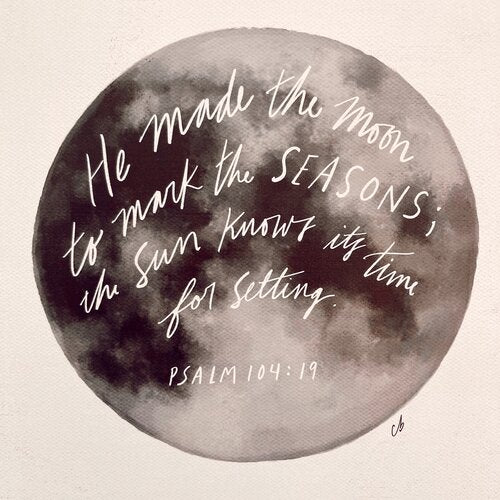 He made the moon
to mark the SEASONS;
the sun knows its time
for setting.
PSALM 104:19
cb